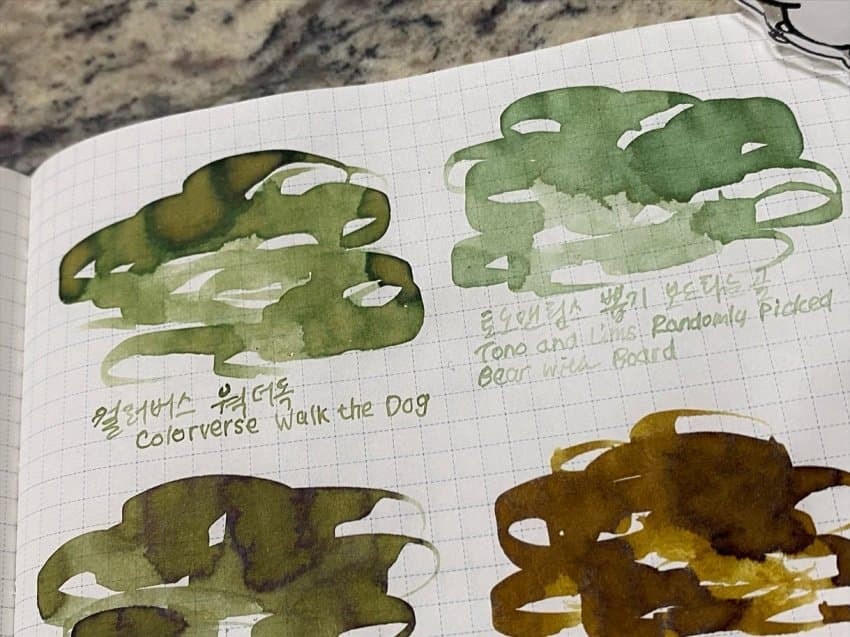 컬러버스 워크더독
Colorverse Walk the Dog
토노앤림스 뽑기 보드타는곰
Tono and Lims Randomly Picked
Bear with Board